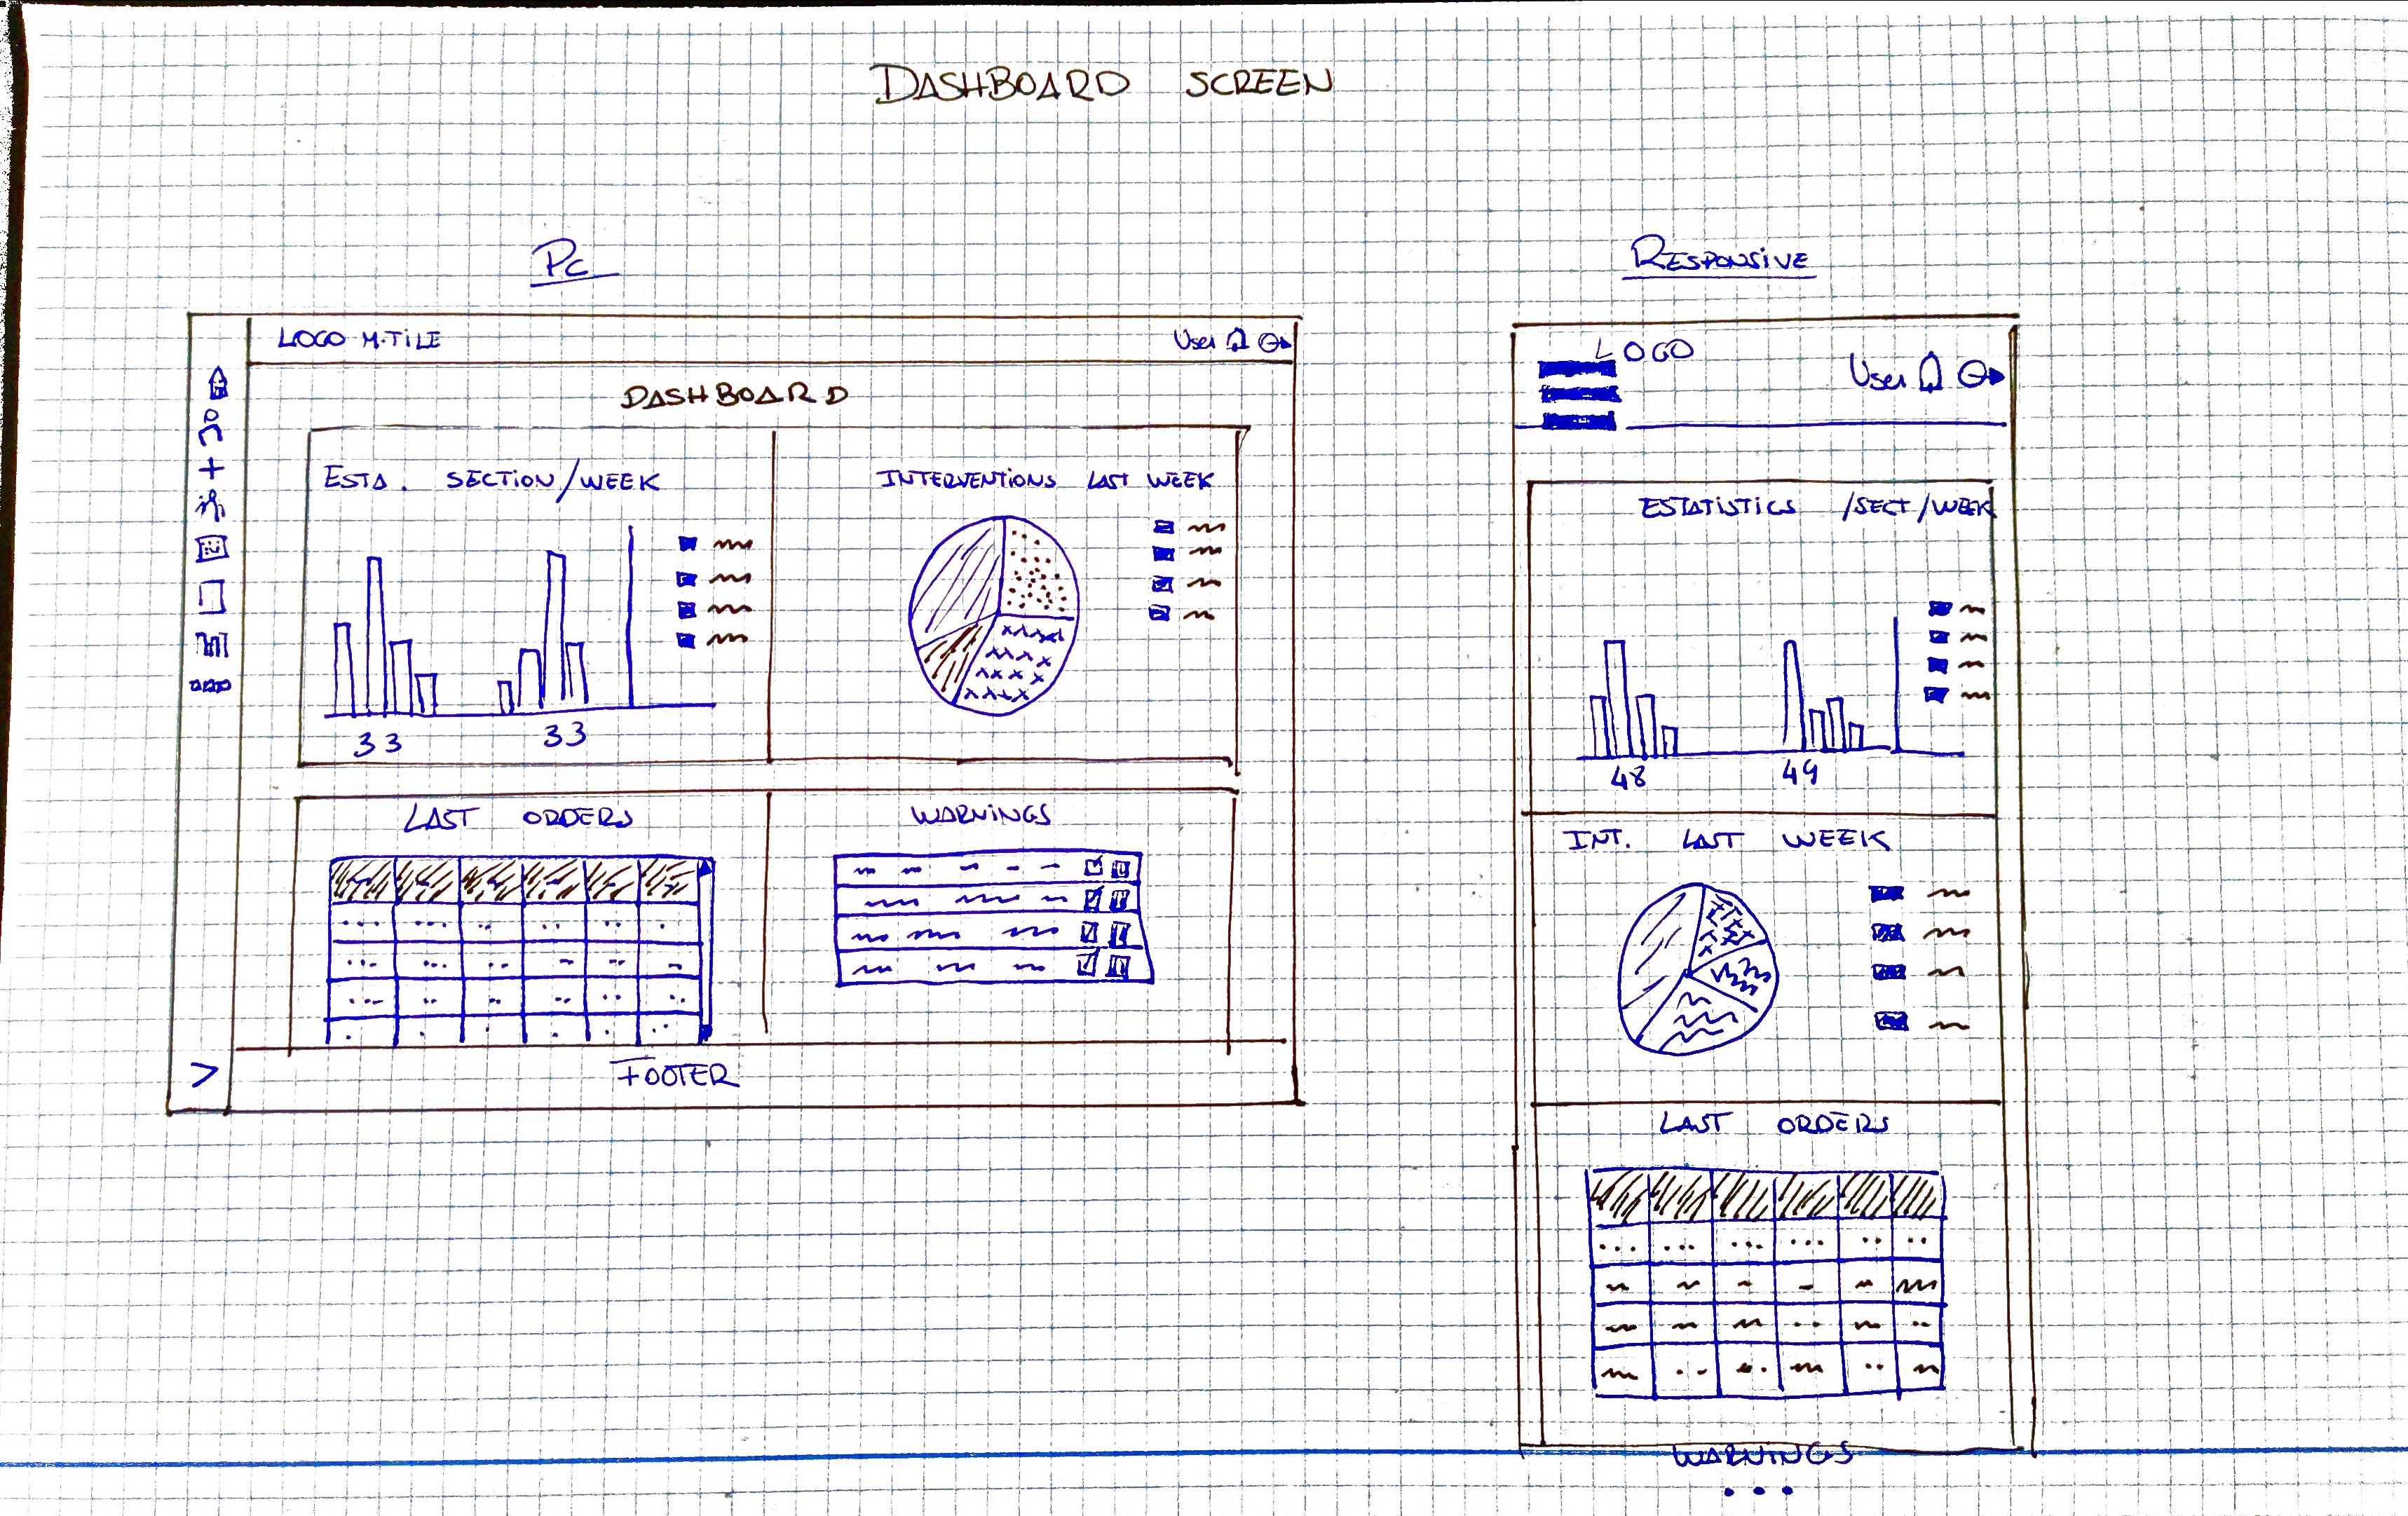 DASHBOARD SCREEN
PC
LOGO M-TILE
User
DASHBOARD
ESTA. SECTION/WEEK
INTERVENTIONS LAST WEEK
33 33
LAST ORDERS
WARNINGS
FOOTER
RESPONSIVE
LOGO
User
ESTATISTICS /SECT/WEEK
48 49
INT. LAST WEEK
LAST ORDERS
WARNINGS
...